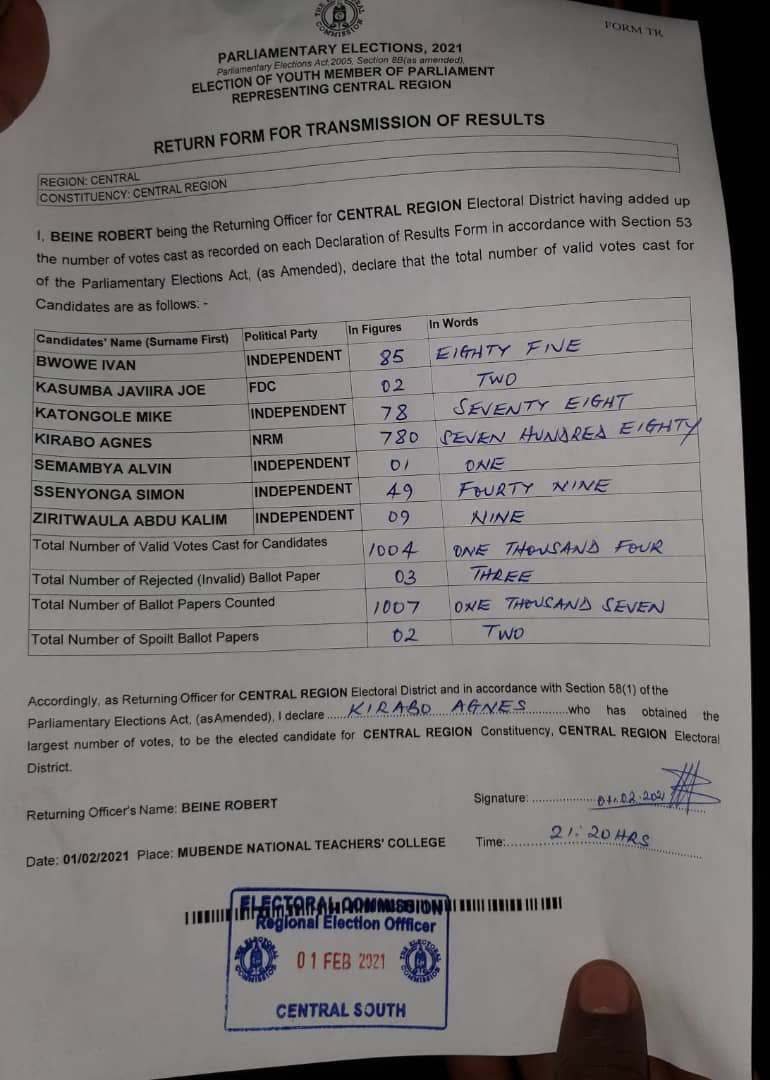 THE ELECTORAL COMMISSION
FORM TR
PARLIAMENTARY ELECTIONS, 2021
Parliamentary Elections Act, 2005, Section 8B(as amended),
ELECTION OF YOUTH MEMBER OF PARLIAMENT
REPRESENTING CENTRAL REGION
RETURN FORM FOR TRANSMISSION OF RESULTS
REGION: CENTRAL
CONSTITUENCY: CENTRAL REGION
I, BEINE ROBERT being the Returning Officer for CENTRAL REGION Electoral District having added up
the number of votes cast as recorded on each Declaration of Results Form in accordance with Section 53
of the Parliamentary Elections Act, (as Amended), declare that the total number of valid votes cast for
Candidates are as follows: -
Candidates' Name (Surname First) Political Party In Figures In Words
BWOWE IVAN INDEPENDENT 85 EIGHTY FIVE
KASUMBA JAVIIRA JOE FDC 02 TWO
KATONGOLE MIKE INDEPENDENT 78 SEVENTY EIGHT
KIRABO AGNES NRM 780 SEVEN HUNDRED EIGHTY
SEMAMBYA ALVIN INDEPENDENT 01 ONE
SSENYONGA SIMON INDEPENDENT 49 FOURTY NINE
ZIRITWAULA ABDU KALIM INDEPENDENT 09 NINE
Total Number of Valid Votes Cast for Candidates 1004 ONE THOUSAND FOUR
Total Number of Rejected (Invalid) Ballot Paper 03 THREE
Total Number of Ballot Papers Counted 1007 ONE THOUSAND SEVEN
Total Number of Spoilt Ballot Papers 02 TWO
Accordingly, as Returning Officer for CENTRAL REGION Electoral District and in accordance with Section 58(1) of the
Parliamentary Elections Act, (as Amended), I declare ......KIRABO AGNES............who has obtained the
largest number of votes, to be the elected candidate for CENTRAL REGION Constituency, CENTRAL REGION Electoral
District.
Returning Officer's Name: BEINE ROBERT Signature: ................01.02.2021
Date: 01/02/2021 Place: MUBENDE NATIONAL TEACHERS' COLLEGE Time:..........21:20HRS..........
ELECTORAL COMMISSION
Regional Election Offficer
01 FEB 2021
THE ELECTORAL COMMISSION
THE ELECTORAL COMMISSION
CENTRAL SOUTH